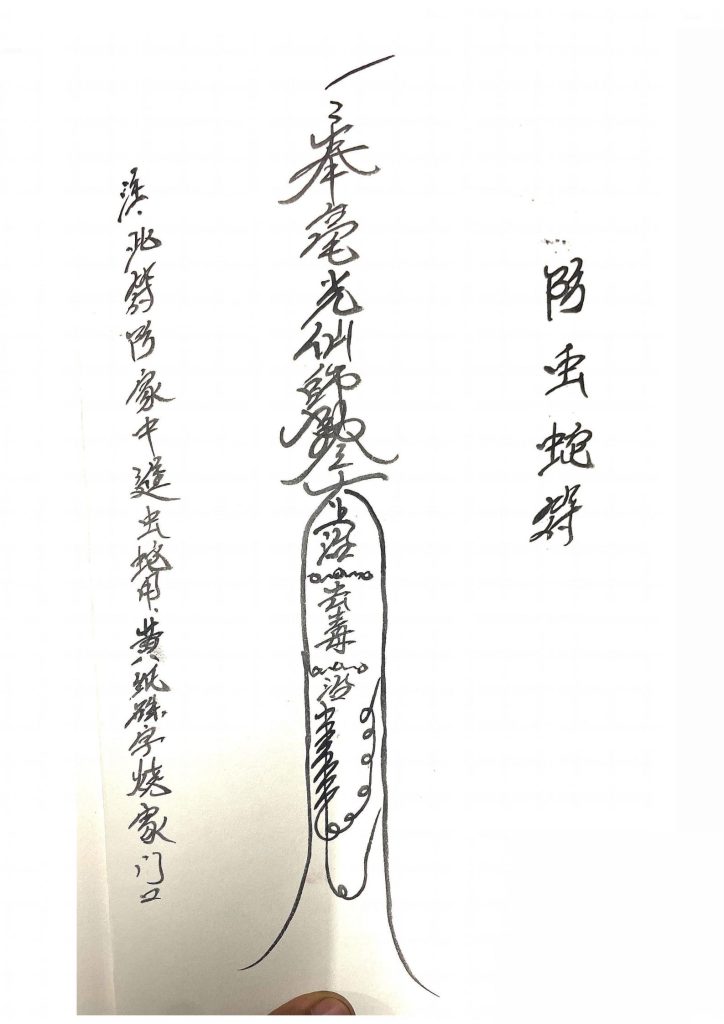 防虫蛇符
奉毫光仙師敕令
去毒
此符防家中進虫蛇用、黄纸硃字烧家门口